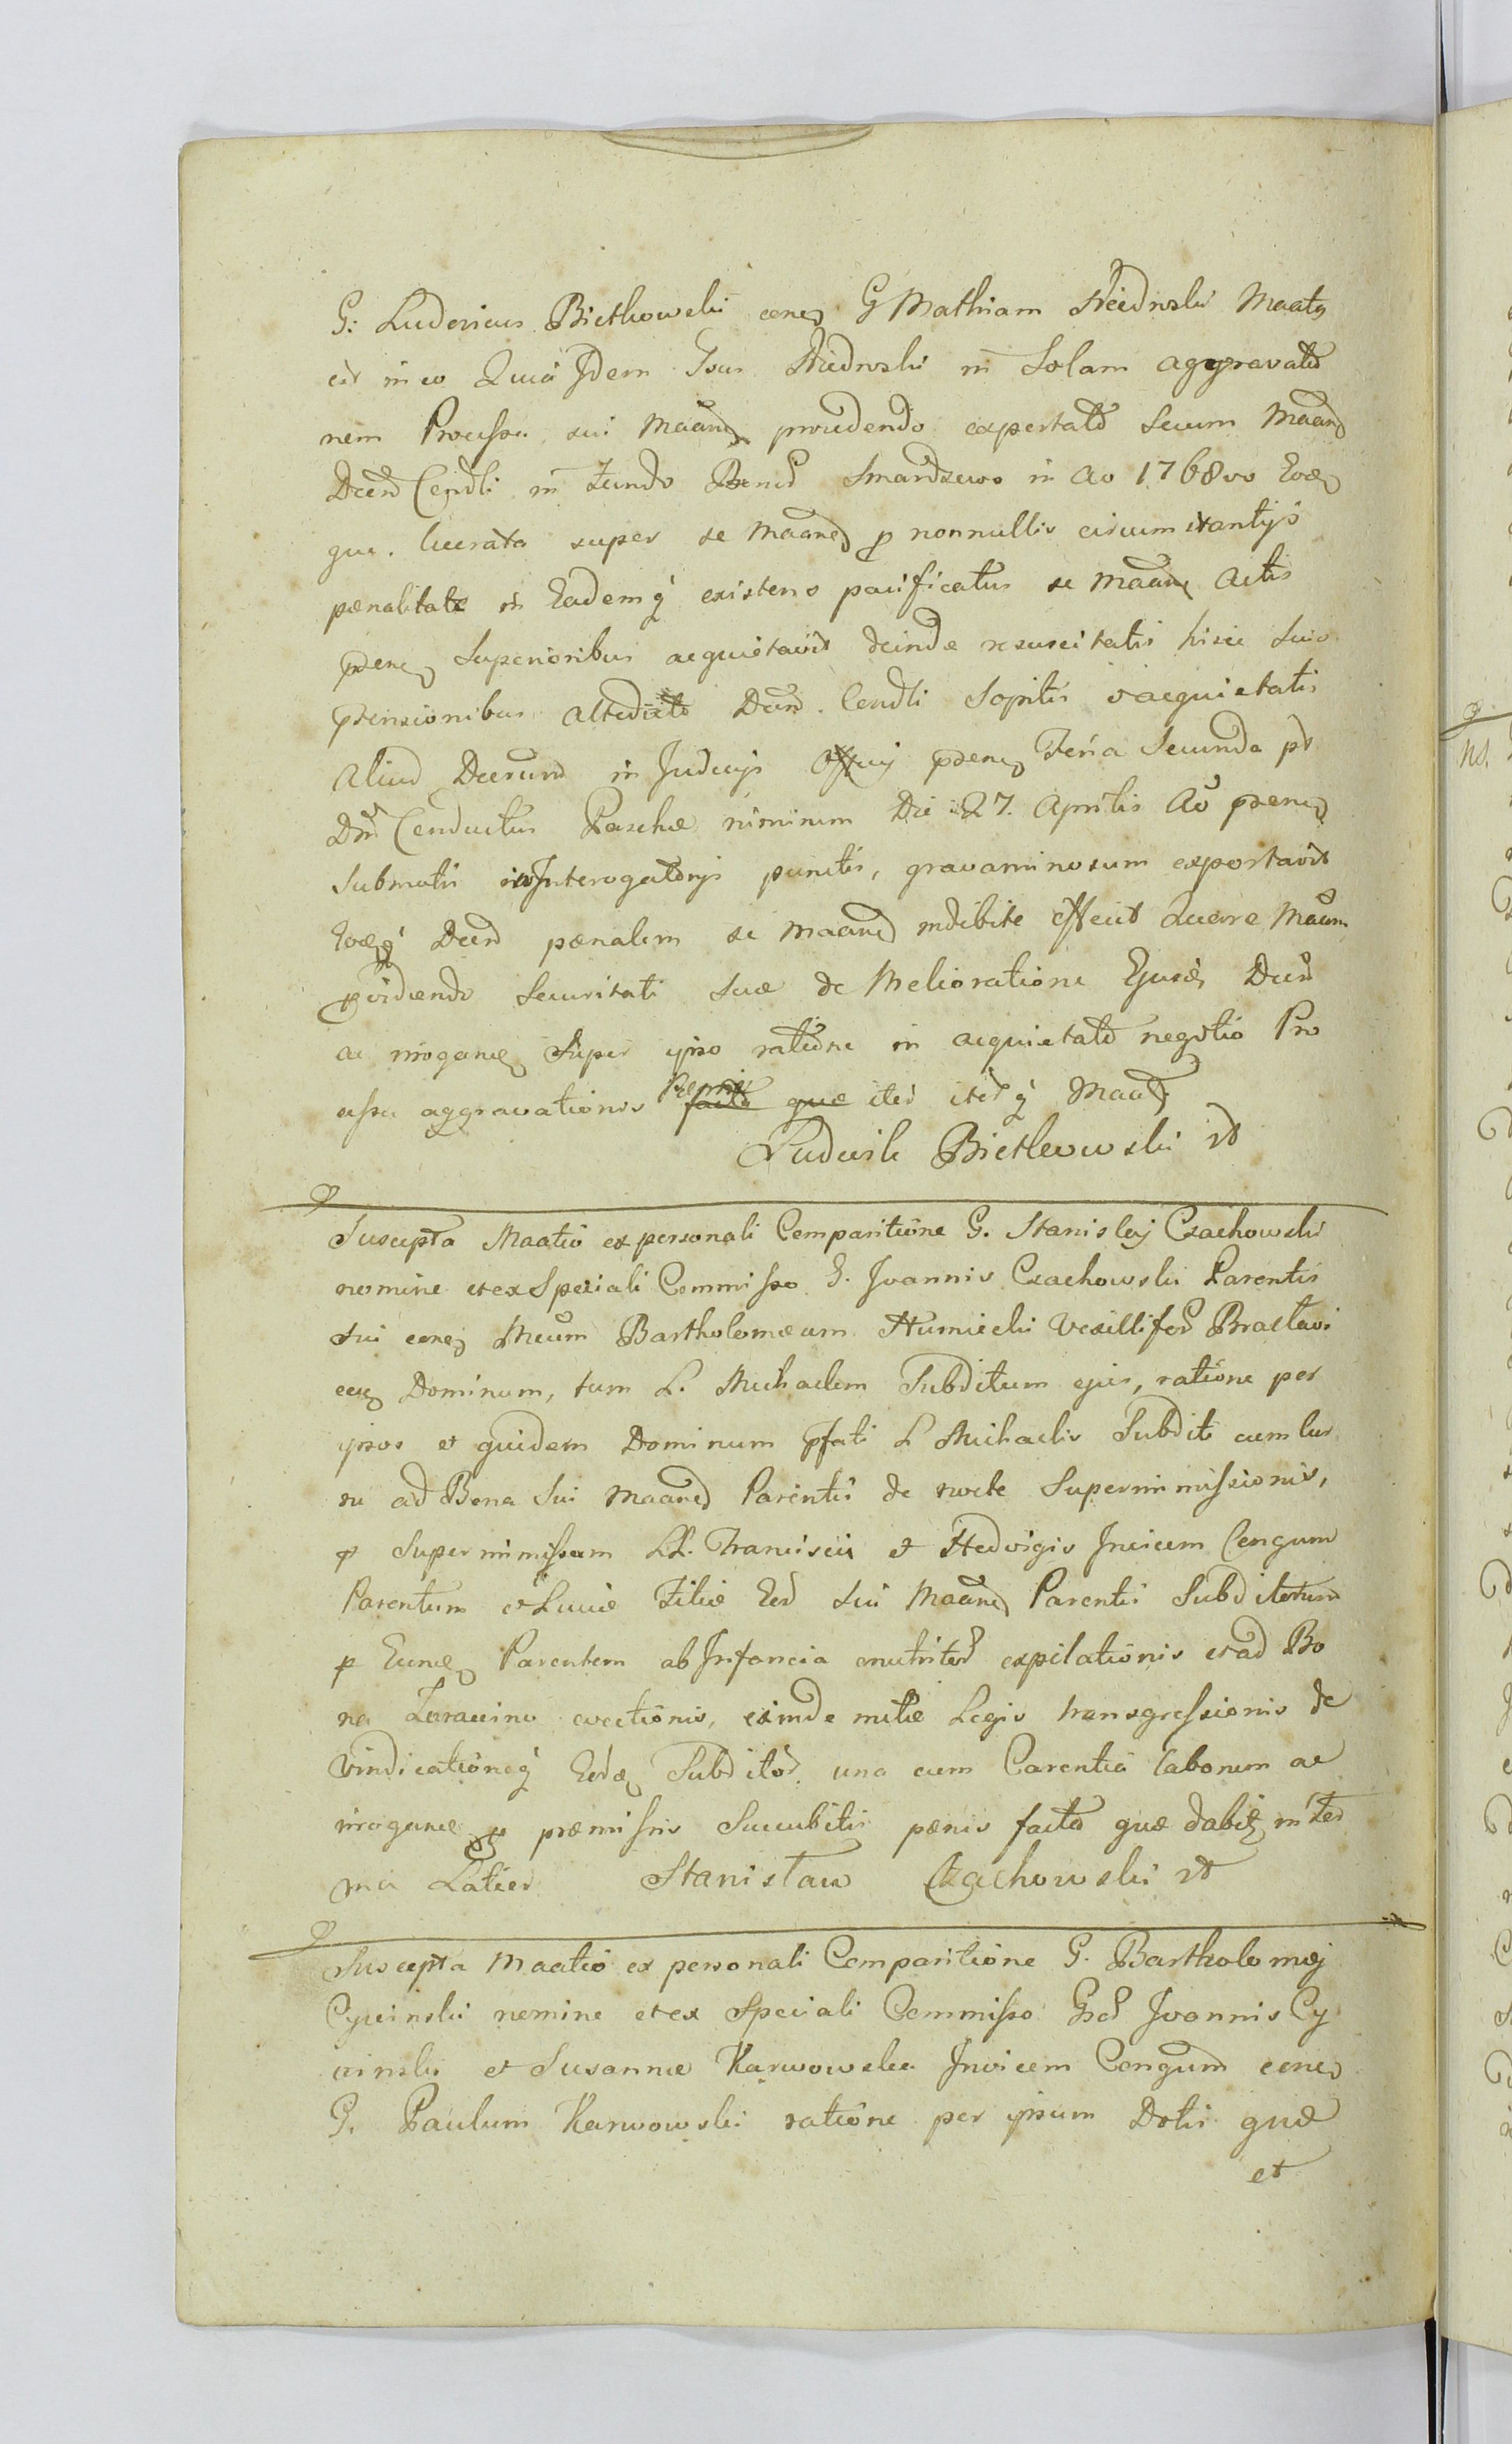 G: Ludovicus Bietkowski cone G Mathiam Niedwski Maatq
est in eo Quia Idem Gsus Niedwski in Solam aggravatō
nem Processu sui Maan̄ procedendo exportatō secum Maan̄
Decrē Cendli in fundo Bonō Smardzewo in ao 1768vo Eoq
que lucrata super se Maanē p nonnullis circumstantijs
pænalitate in Eademq existens pacificatus se Maane Actis
pren̄ superioribus acquietavit deinde resuscitatis hisce suis
prensionibus altedicto Decrē Cendli Sopitis & acquietatis
Aliud Decrum in Judicijs Officij pren̄ Feria Secunda pt
Dnē Conductus Paschæ nimirum Die 27. Aprilis Aō pren̄
Submotis in Interogatorijs punctis, gravaminosum exportavit
Eoq Decrē pænalem se maanē indebite effecit Quare Maan̄
providendo Securitati suæ de Melioratione Ejusd Decrē
ac irrogane Super ipso ratione in acquietatō negotio Pro
cessu aggravationis Pœnis facto quæ iter iterq Maatq
Ludwik Bietkowski
Suscepta Maatio ex personali Comparitione G. Stanislaj Czachowski
nomine et ex Speciali Commisso G. Joannis Czachowski Parentis
sui cone Mcum Bartholomæum Humiecki Vexilliferū Braclavi
ceñ Dominum, tum L. Michaelem Subditum ejus, ratione per
ipsos et quidem Dominum pfati L Michaelis Subditi cum cur
ru ad Bona Sui Maanē Parentis de nocte Superimmissionis,
p superimmissam LL. Francisci et Hedvigis Invicem Conigum
Parentum et Luciæ Filiæ Eor Sui Maanē Parentis Subditorum
p Eunde Parentem ab Infancia enutritor expilationis et ad Bo
na Zurawino evectionis, exinde mitiæ Legis transgressionis de
vindicationeq Eord Subditor una cum Carentia laborum ac
irrogane p præmissis Succubitis pænis facto quæ dabit in ter
mi Latior Stanisław Czachowski
Suscepta Maatio ex personali Comparitione G. Bartholomej
Cywinski nomine et ex Speciali Commisso Gsor Joannis Cy
winski et Susannæ Karwowska Invicem Conigum cone
G. Paulum Karwowski ratione per ipsum Dotis quæ
et